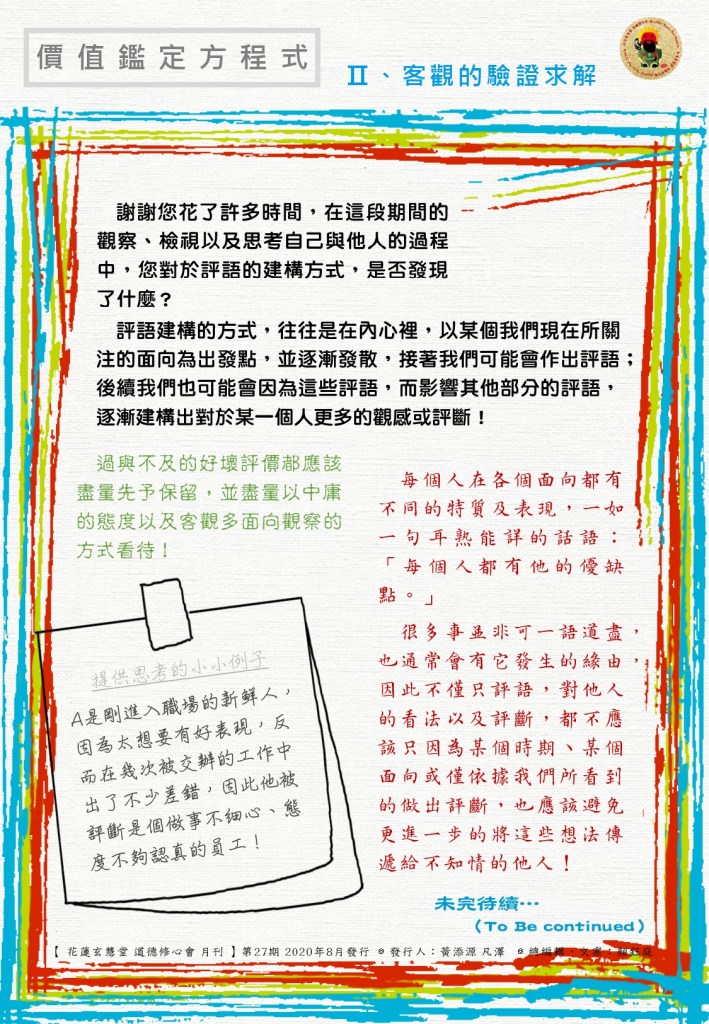 價值鑑定方程式
Ⅱ、客觀的驗證求解
謝謝您花了許多時間，在這段期間的
觀察、檢視以及思考自己與他人的過程
中，您對於評語的建構方式，是否發現
了什麼？
評語建構的方式，往往是在內心裡，以某個我們現在所關
注的面向為出發點，並逐漸發散，接著我們可能會作出評語；
後續我們也可能會因為這些評語，而影響其他部分的評語，
逐漸建構出對於某一個人更多的觀感或評斷！
過與不及的好壞評價都應該
盡量先予保留，並盡量以中庸
的態度以及客觀多面向觀察的
方式看待！
每個人在各個面向都有
不同的特質及表現，一如
一句耳熟能詳的話語：
「每個人都有他的優缺
點。」
很多事並非可一語道盡，
也通常會有它發生的緣由，
因此不僅只評語，對他人
的看法以及評斷，都不應
該只因為某個時期、某個
面向或僅依據我們所看到
的做出評斷，也應該避免
更進一步的將這些想法傳
遞給不知情的他人！
提供思考的小小例子
A是剛進入職場的新鮮人，
因為太想要有好表現，反
而在幾次被交辦的工作中
出了不少差錯，因此他被
評斷是個做事不細心、態
度不夠認真的員工！
未完待續…
（To Be continued）
【 花蓮玄慧堂 道德修心會 月刊 】第27期 2020年8月發行 ※發行人：黃添源 凡澤 ※總編輯、文案：